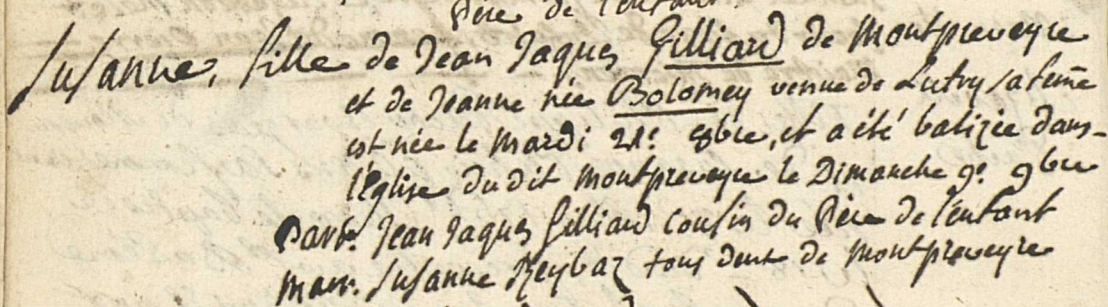 Père de l'enfant.
Susanne, fille de Jean Jaques Gilliard de Montpreveyre
et de Jeanne née Bolomey venue de Lutry sa feme
est née le Mardi 21e. 8bre, et a été batizée dans-
l'Eglise dudit Montpreveyre le Dimanche 9e. 9bre
Parr. Jean Jaques Gilliard cousin du Père de l'enfant
Marr. Susanne Reybaz tous deux de Montpreveyre